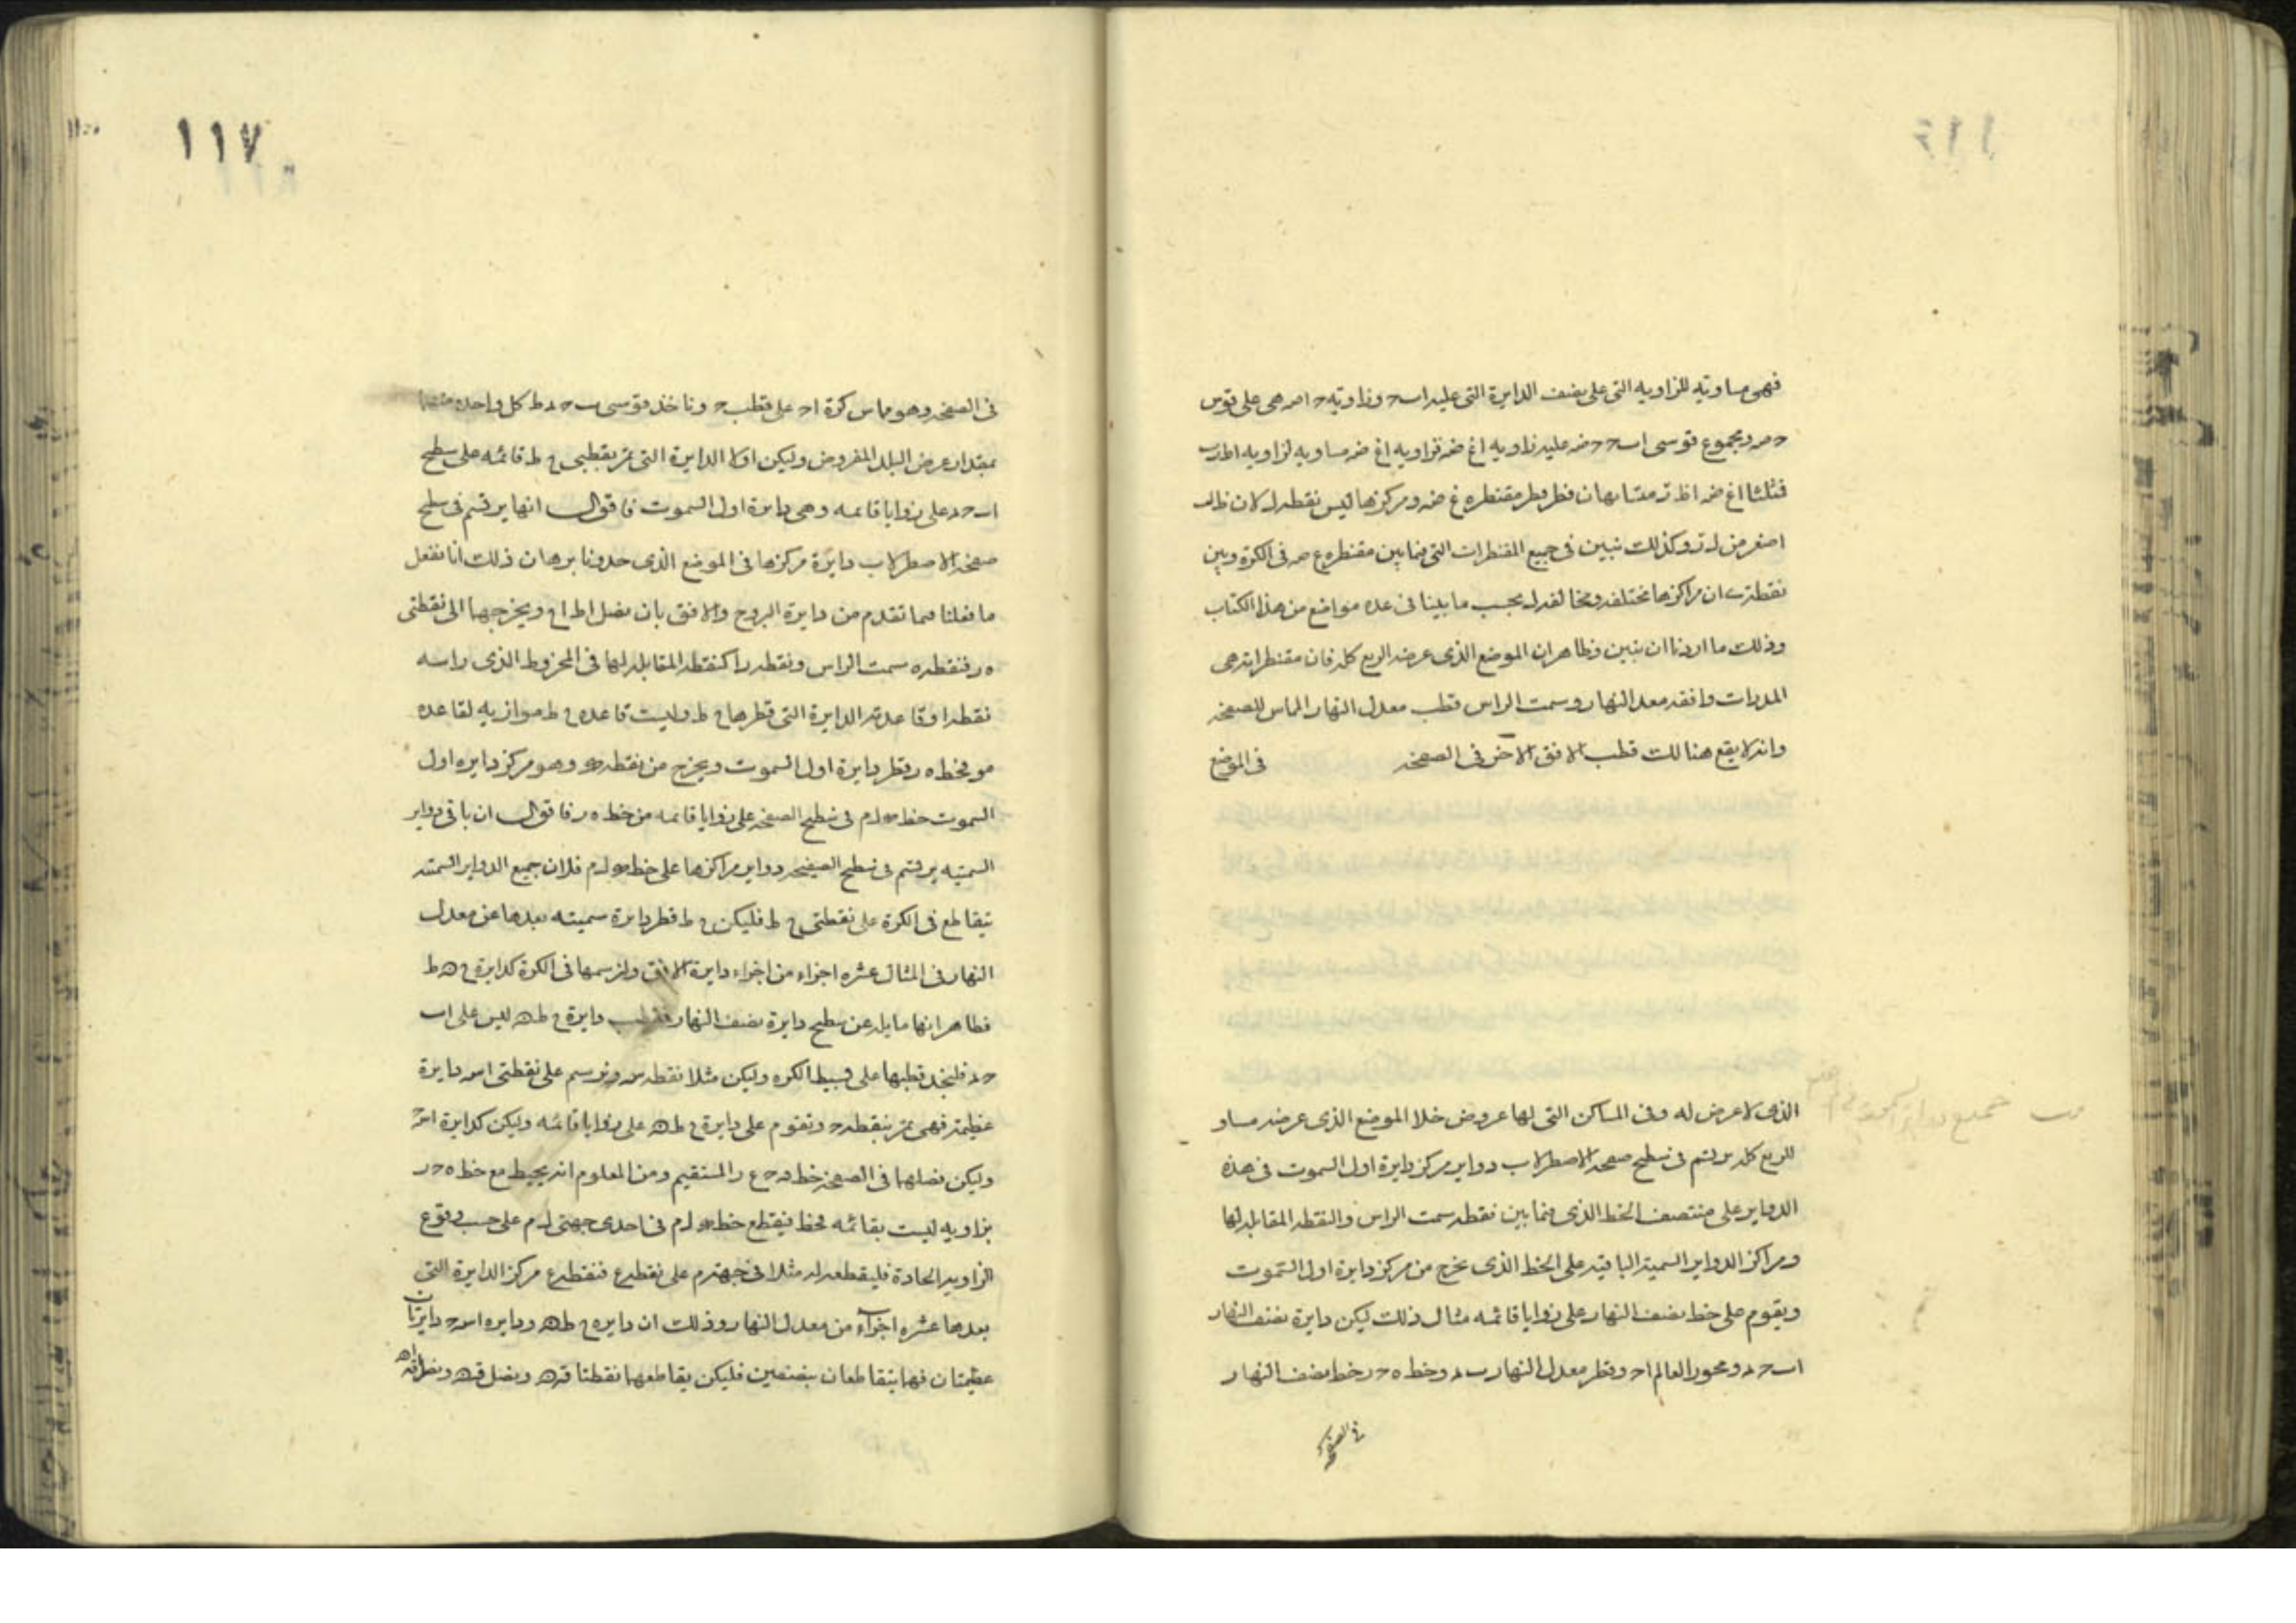 فهى مساويه للزاويه التى على نصف الدايرة التى عليه اب‍ح وزاوية ح ا م هى على قوس
ح م ومجموع قوسى اب‍ح ح ص عليه زاويه اغ ص فزاويه اغ ص مساويه لزاويه اظ ت
فمثلثا اغ ص اظ ت متشابهان فظ قطر مقنطره غ ص ومركزها ليس نقطه ل لان ظ ل
اصغر من ل ت وكذلك نبين فى جميع المقنطرات التى فيما بين مقنطره ع ص فى الكرة وبين
نقطة ى ان مراكزها مختلفه ومخالفه ل بحسب ما بينا فى عده مواضع من هذا الكتاب
وذلك ما اردنا ان نبين وظاهر ان الموضع الذى عرضه الربع كله فان مقنطراته هى
المدارات وافقه معدل النهار وسمت الراس قطب معدل النهار المماس للصفيحه
وانه لا يقع هنالك قطب الافق الاخر فى الصفيحه فى الموضع
الذى لا عرض له وفى المساكن التى لها عروض خلا الموضع الذى عرضه مساو
للربع كله يرتسم فى سطح صفحه الاصطرلاب دواير مركز دايرة اول السموت فى هذه
الدواير على منتصف الخط الذى فيما بين نقطه سمت الراس والنقطه المقابله لها
ومراكز الدواير السمتيه الباقيه على الخط الذى يخرج من مركز دايرة اول السموت
ويقوم على خط نصف النهار على زوايا قائمه مثال ذلك ليكن دايرة نصف النهار
ا ب ح د ومحور العالم ا ح وقطر معدل النهار ب د وخط ه ح ر خط نصف النهار
فى الصفيحه
جميع دواير السموت فى
١١٧
فى الصفحه وهو مماس كرة ا ح على قطب ح وناخذ قوسى ب ح د ط كل واحده منهما
بمقدار عرض البلد المفروض وليكن اولا الدايرة التى تمر بقطبى ح ط قائمه على سطح
ا ب ح د على زوايا قائمه وهى دايرة اول السموت فاقول انها يرتسم فى سطح
صفحه الاصطرلاب دايرة مركزها فى الموضع الذى حدونا برهان ذلك انا نفعل
ما فعلنا فيما تقدم من دايرة البروج والافق بان نصل ا ط ا ح ويخرجهما الى نقطتى
ه ر فنقطه ه سمت الراس ونقطه ر النقطه المقابله لها فى المخروط الذى راسه
نقطه ا وقاعدته الدايرة التى قطرها ح ط وليست قاعده ح ط موازيه لقاعده
مو فخط ه ر قطر دايرة اول السموت ويخرج من نقطه ك وهو مركز دايره اول
السموت خط ك ل م فى سطح الصفحه على زوايا قائمه من خط ه ر فاقول ان باقى دواير
السمتيه يرتسم فى سطح الصفيحه دواير مراكزها على خط ك ل م فلان جميع الدواير السمتيه
يتقاطع فى الكرة على نقطتى ح ط فليكن ح ط قطر دايرة سمتيه بعدها عن معدل
النهار فى المثال عشره اجزاء من اجزاء دايرة الافق ولنرسمها فى الكرة كدايرة ح ه ط
فظاهر انها مايله عن سطح دايرة نصف النهار فقطب دايرة ح ط ه ليس على ا ب
ح د فليخد قطبها على بسيط الكره وليكن مثلا نقطه س ونرسم على نقطتى ا س دايرة
عظيمه فهى تمر بنقطه ح وتقوم على دايرة ح ط ه على زوايا قائمه وليكن كدايرة ا س ح
وليكن فصلهما فى الصفحه خط ف ح ع ر المستقيم ومن المعلوم انه يحيط مع خط ه ح ر
بزاويه ليست بقائمه فخط يقطع خط ك ل م فى احدى جهتى ل م على حسب وقوع
الزاويه الحادة فليقطعه له مثلا فى جهة م على نقطه ع فنقطه ع مركز الدايرة التى
بعدها عشره اجزاء من معدل النهار وذلك ان دايره ح ط ه ودايره ا س ح دايرتان
عظيمتان فهما يتقاطعان بنصفين فليكن يقاطعهما نقطتا ق ه ونصل ق ه ونصل ا ق ا ه